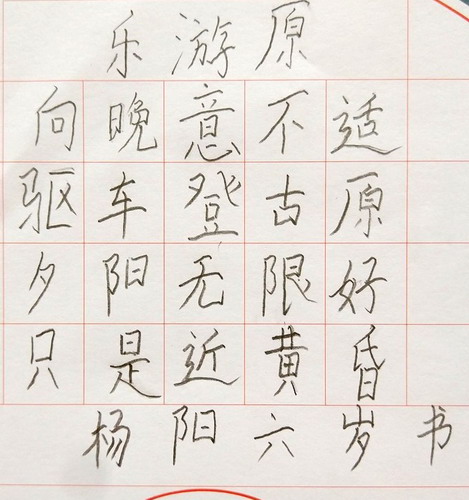 乐游原
向晚意不适
驱车登古原
夕阳无限好
只是近黄昏
杨阳六岁书